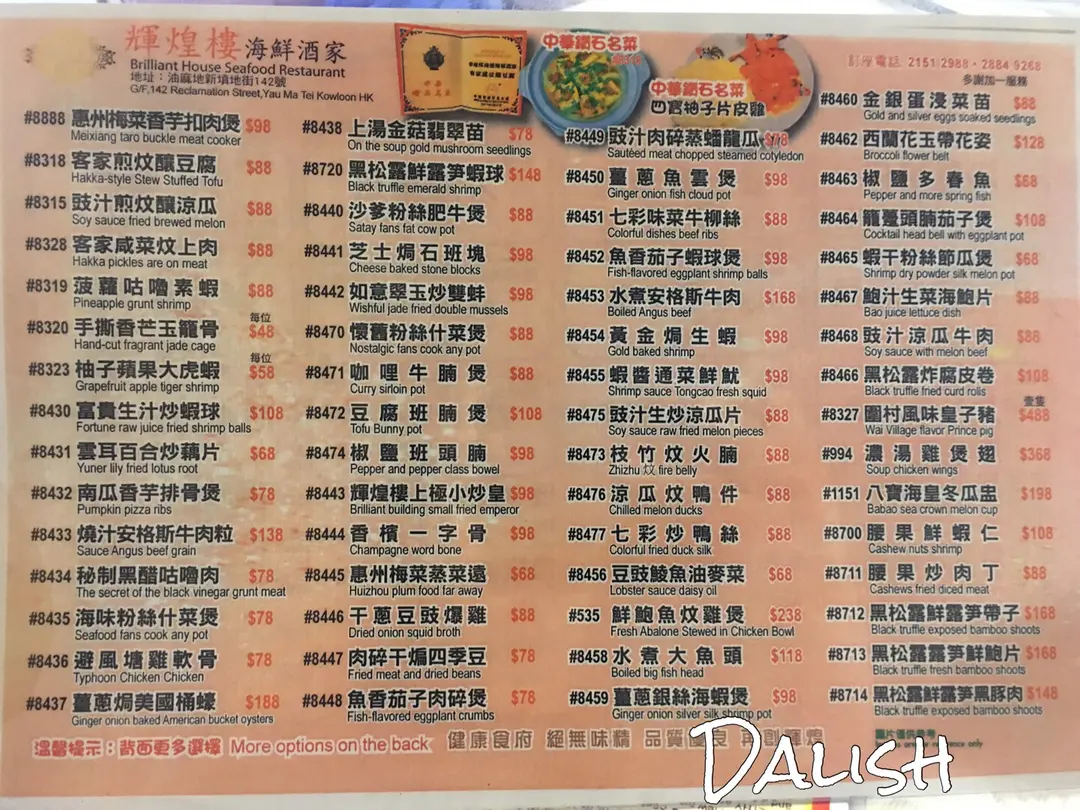 輝煌樓 海鮮酒家
Brilliant House Seafood Restaurant
地址：油麻地新填地街142號
G/F,142 Reclamation Street,Yau Ma Tei Kowloon HK
中華鑽石名菜
中華鑽石名菜
四寶柚子片皮雞
訂座電話 2151 2988・2884 9268
多謝加一服務
#8888 惠州梅菜香芋扣肉煲 $98
Meixiang taro buckle meat cooker
#8318 客家煎炆釀豆腐 $88
Hakka-style Stew Stuffed Tofu
#8315 豉汁煎炆釀涼瓜 $88
Soy sauce fried brewed melon
#8328 客家咸菜炆上肉 $88
Hakka pickles are on meat
#8319 菠蘿咕嚕素蝦 $88
Pineapple grunt shrimp
每位
#8320 手撕香芒玉龍骨 $48
Hand-cut fragrant jade cage
每位
#8323 柚子蘋果大虎蝦 $58
Grapefruit apple tiger shrimp
#8430 富貴生汁炒蝦球 $108
Fortune raw juice fried shrimp balls
#8431 雲耳百合炒藕片 $68
Yuner lily fried lotus root
#8432 南瓜香芋排骨煲 $78
Pumpkin pizza ribs
#8433 燒汁安格斯牛肉粒 $138
Sauce Angus beef grain
#8434 秘制黑醋咕嚕肉 $78
The secret of the black vinegar grunt meat
#8435 海味粉絲什菜煲 $78
Seafood fans cook any pot
#8436 避風塘雞軟骨 $78
Typhoon Chicken Chicken
#8437 薑蔥焗美國桶蠔 $188
Ginger onion baked American bucket oysters
#8438 上湯金菇翡翠苗 $78
On the soup gold mushroom seedlings
#8720 黑松露鮮露笋蝦球 $148
Black truffle emerald shrimp
#8440 沙爹粉絲肥牛煲 $88
Satay fans fat cow pot
#8441 芝士焗石班塊 $98
Cheese baked stone blocks
#8442 如意翠玉炒雙蚌 $98
Wishful jade fried double mussels
#8470 懷舊粉絲什菜煲 $88
Nostalgic fans cook any pot
#8471 咖哩牛腩煲 $88
Curry sirloin pot
#8472 豆腐班腩煲 $108
Tofu Bunny pot
#8474 椒鹽班頭腩 $98
Pepper and pepper class bowel
#8443 輝煌樓上極小炒皇 $98
Brilliant building small fried emperor
#8444 香檳一字骨 $98
Champagne word bone
#8445 惠州梅菜蒸菜遠 $68
Huizhou plum food far away
#8446 干蔥豆豉爆雞 $88
Dried onion squid broth
#8447 肉碎干煸四季豆 $78
Fried meat and dried beans
#8448 魚香茄子肉碎煲 $78
Fish-flavored eggplant crumbs
#8449 豉汁肉碎蒸蟠龍瓜 $78
Sautéed meat chopped steamed cotyledon
#8450 薑蔥魚雲煲 $98
Ginger onion fish cloud pot
#8451 七彩味菜牛柳絲 $88
Colorful dishes beef ribs
#8452 魚香茄子蝦球煲 $98
Fish-flavored eggplant shrimp balls
#8453 水煮安格斯牛肉 $168
Boiled Angus beef
#8454 黃金焗生蝦 $98
Gold baked shrimp
#8455 蝦醬通菜鮮魷 $98
Shrimp sauce Tongcao fresh squid
#8475 豉汁生炒涼瓜片 $88
Soy sauce raw fried melon pieces
#8473 枝竹炆火腩 $88
Zhizhu 炆 fire belly
#8476 涼瓜炆鴨件 $88
Chilled melon ducks
#8477 七彩炒鴨絲 $88
Colorful fried duck silk
#8456 豆豉鯪魚油麥菜 $68
Lobster sauce daisy oil
#535 鮮鮑魚炆雞煲 $238
Fresh Abalone Stewed in Chicken Bowl
#8458 水煮大魚頭 $118
Boiled big fish head
#8459 薑蔥銀絲海蝦煲 $98
Ginger onion silver silk shrimp pot
#8460 金銀蛋浸菜苗 $88
Gold and silver eggs soaked seedlings
#8462 西蘭花玉帶花姿 $128
Broccoli flower belt
#8463 椒鹽多春魚 $68
Pepper and more spring fish
#8464 籠躉頭腩茄子煲 $108
Cocktail head bell with eggplant pot
#8465 蝦干粉絲節瓜煲 $68
Shrimp dry powder silk melon pot
#8467 鮑汁生菜海鮑片 $88
Bao juice lettuce dish
#8468 豉汁涼瓜牛肉 $88
Soy sauce with melon beef
#8466 黑松露炸腐皮卷 $108
Black truffle fried curd rolls
壹隻
#8327 圍村風味皇子豬 $488
Wai Village flavor Prince pig
#994 濃湯雞煲翅 $368
Soup chicken wings
#1151 八寶海皇冬瓜盅 $198
Babao sea crown melon cup
#8700 腰果鮮蝦仁 $108
Cashew nuts shrimp
#8711 腰果炒肉丁 $88
Cashews fried diced meat
#8712 黑松露鮮露笋帶子 $168
Black truffle exposed bamboo shoots
#8713 黑松露露笋鮮鮑片 $168
Black truffle fresh bamboo shoots
#8714 黑松露鮮露笋黑豚肉 $148
Black truffle exposed bamboo shoots
溫馨提示：背面更多選擇 More options on the back
健康食府 絕無味精 品質優良 再創輝煌
圖片僅供參考
DALISH